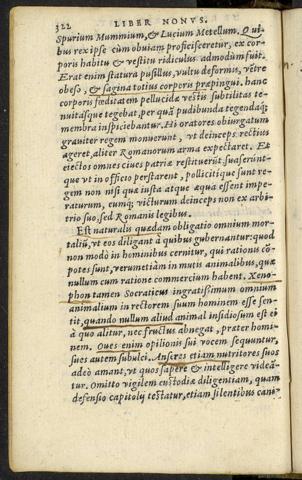 322 LIBER NONVS.
Spurium Mummium, & Lucium Metellum. Quibus
rex ipse cùm obuiam proficisceretur, ex corporis
habitu & vestitu ridiculus admodùm fuit.
Erat enim statura pusillus, vultu deformis, vẽtre
obeso, & sagina totius corporis præpingui. hanc
corporis fœditatem pellucidæ vestis subtilitas tenuitasque
tegebat, per quã pudibunda tegendaq́;
membra inspiciebantur. Hi oratores obiurgatum
grauiter regem monuerunt, vt deinceps rectius
ageret, aliter Romanorum arma expectaret. Et
eiectos omnes ciues patriæ restituerũt suaserúntque
vt in officio perstarent, pollicitique sunt regem
non nisi quæ iusta atque æqua essent imperaturum,
eumq; victurum deinceps non ex arbitrio
suo, sed Romanis legibus.
Est naturalis quædam obligatio omnium mortaliũ,
vt eos diligant à quibus gubernantur: quod
non modò in hominibus cernitur, qui rationis cõpotes
sunt, verumetiàm in mutis animalibus, quæ
nullum cum ratione commercium habent. Xenophon
tamen Socraticus ingratissimum omnium
animalium in rectorem suum hominem esse sentit,
quando nullum aliud animal insidiosum est ei
à quo alitur, nec fructus abnegat, præter hominem.
Oues enim opilionis sui vocem sequuntur,
sues autem subulci. Anseres etiam nutritores suos
adeò amant, vt quos sapere & intelligere videãtur.
Omitto vigilem custodiæ diligentiam, quam
defensio capitolij testatur, etiam silentibus cani-